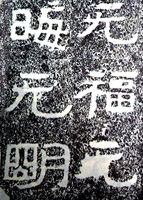 元福元
晦元朙